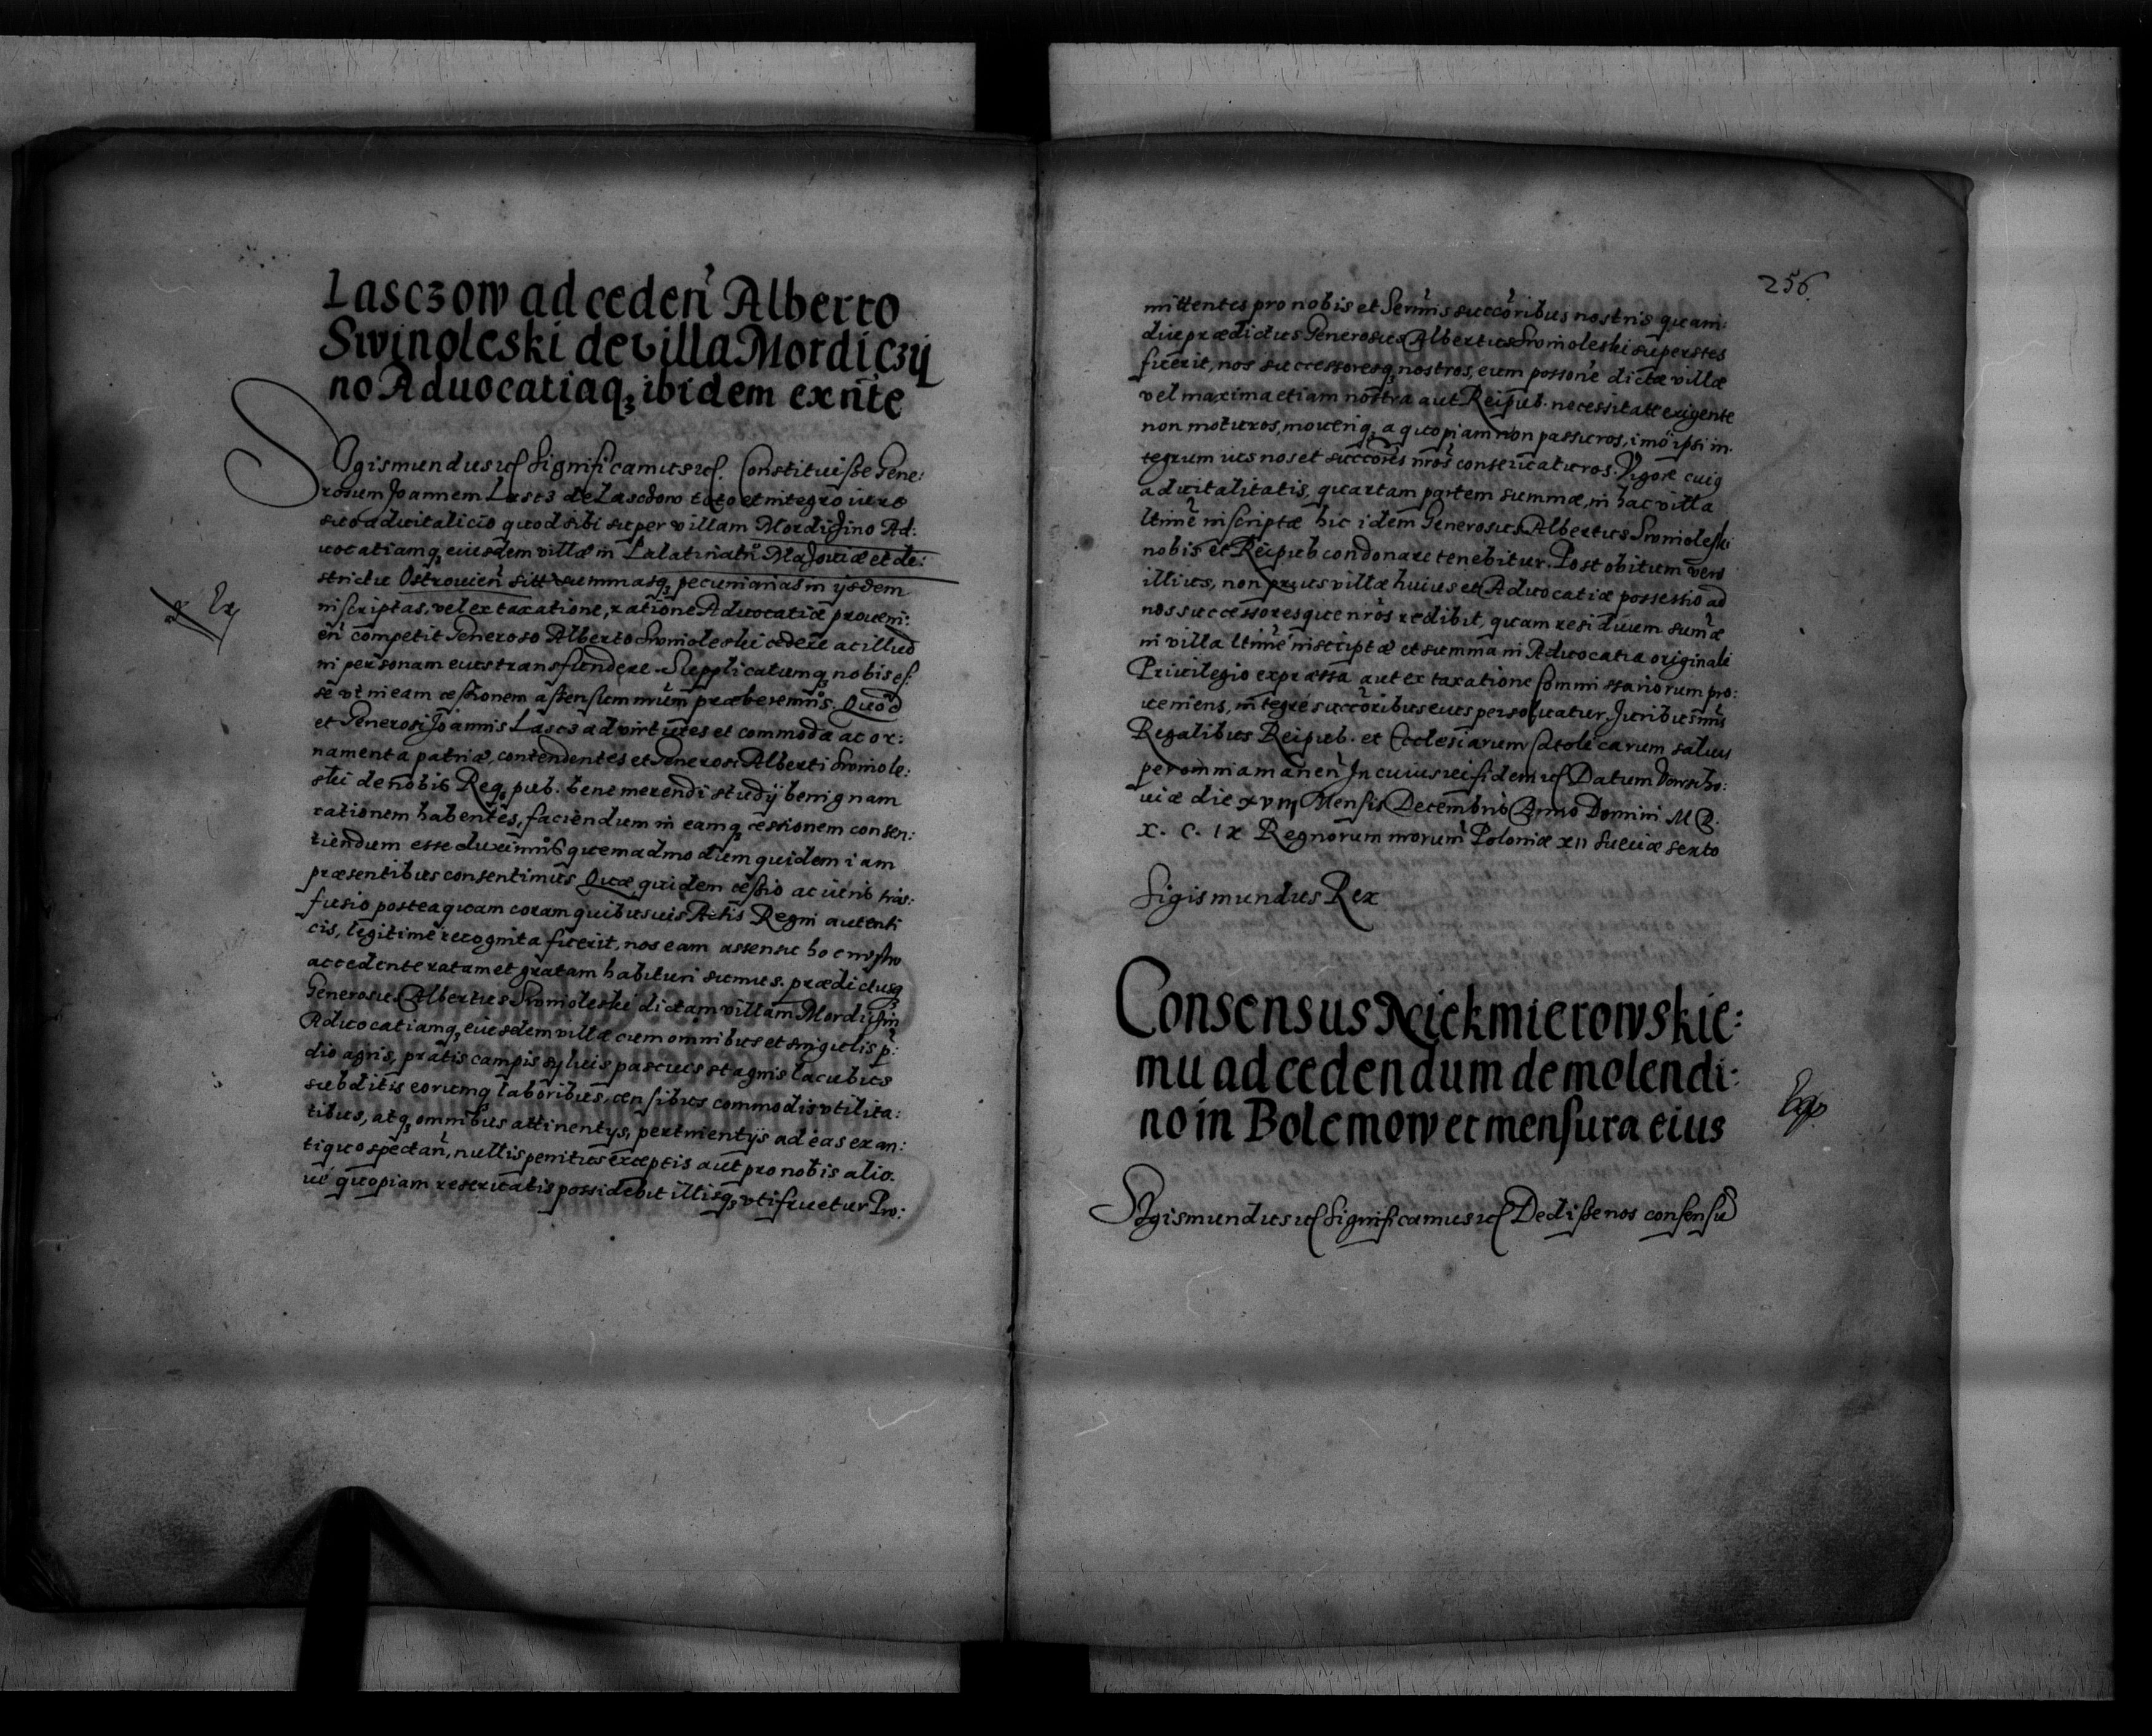 Lasczow ad ceden Alberto
Swinoleski de villa Mordiczÿ
no Aduocatiaq; ibidem exn̄te
Sigismundus etc Significamus etc. Constituisse Gene:
rosum Joannem Lascz de Lasczow toto et integro iure
suo aduitalicio quod sibi super villam Mordizino Ad:
uocatiamq; eiusdem villæ in Palatinatu Mazouiæ et di:
strictu Ostrouien sitt summasq; pecuniarias in ijsdem
inscriptas, vel ex taxatione, ratione Aduocatiæ proueni:
en competit Generoso Alberto Swinoleski cedere ac illud
in personam eius transfundere. Supplicatumq; nobis es:
se vt in eam cessionem assensum nrūm præberemus. Quod
et Generosi Joannis Lascz ad virtutes et commoda ac or:
namenta patriæ, contendentes et Generosi Alberti Swinole:
ski de nobis Req; pub. bene merendi studij benignam
rationem habentes, faciendum in eamq; cessionem consen:
tiendum esse duximus quemadmodum quidem iam
præsentibus consentimus. Quæ quidem cessio ac iuris trās:
fusio posteaquam coram quibusuis Actis Regni autenti
cis, legitimè recognita fuerit, nos eam assensu hoc nr̄o
accedente ratam et gratam habituri sumus. prædictusq;
Generosus Albertus Swinoleski dictam villam Mordizin
Aduocatiamq; eiusdem villæ cum omnibus et singulis p:
dio agris, pratis campis syluis pascuis stagnis lacubus
subditis eorumq; laboribus, censibus commodis vtilita:
tibus, atq; omnibus attinentijs, pertinentijs ad eas ex an:
tiquo spectan, nullis penitus exceptis aut pro nobis alio.
ué quopiam reseruatis possidebit illisq; vtifruetur Pro:
256.
mittentes pro nobis et Sermis succoribus nostris quam:
diu prædictus Generosus Albertus Swinoleski superstes
fuerit, nos successoresq; nostros, eum possone dictæ villæ
vel maxima etiam nostra aut Reipub. necessitate exigente
non moturos, moueriq; a quopiam non passuros, imò ipsi in.
tegrum ius nos et succores nros conseruaturos. Vigore cuiq
aduitalitatis, quartam partem summæ, in hac villa
ltimè inscriptæ hic idem Generosus Albertus Swinoleski
nobis et Reipub condonare tenebitur. Post obitum vero
illius, non prius villæ huius et Aduocatiæ possessio ad
nos successoresque nros redibit, quam residuum sumæ
in villa ltimè inscriptæ et summa in Aduocatia originali
Priuilegio expressa aut ex taxatione Commissariorum pro:
ueniens, integrè succoribus eius persoluatur. Juribus nris
Regalibus Reipub. et Ecclesiarum Catolicarum saluis
per omnia manen. In cuius rei fidem etc Datum
uiæ die xviij Mensis Decembris Anno Domini M D.
X. C. IX Regnorum nrorum Poloniæ xii Sueciæ sexto
Sigismundus Rex
Consensus Niekmierowskie:
mu ad cedendum de molendi:
no in Bolemow et mensura eius
Sigismundus etc Significamus etc Dedisse nos consensū